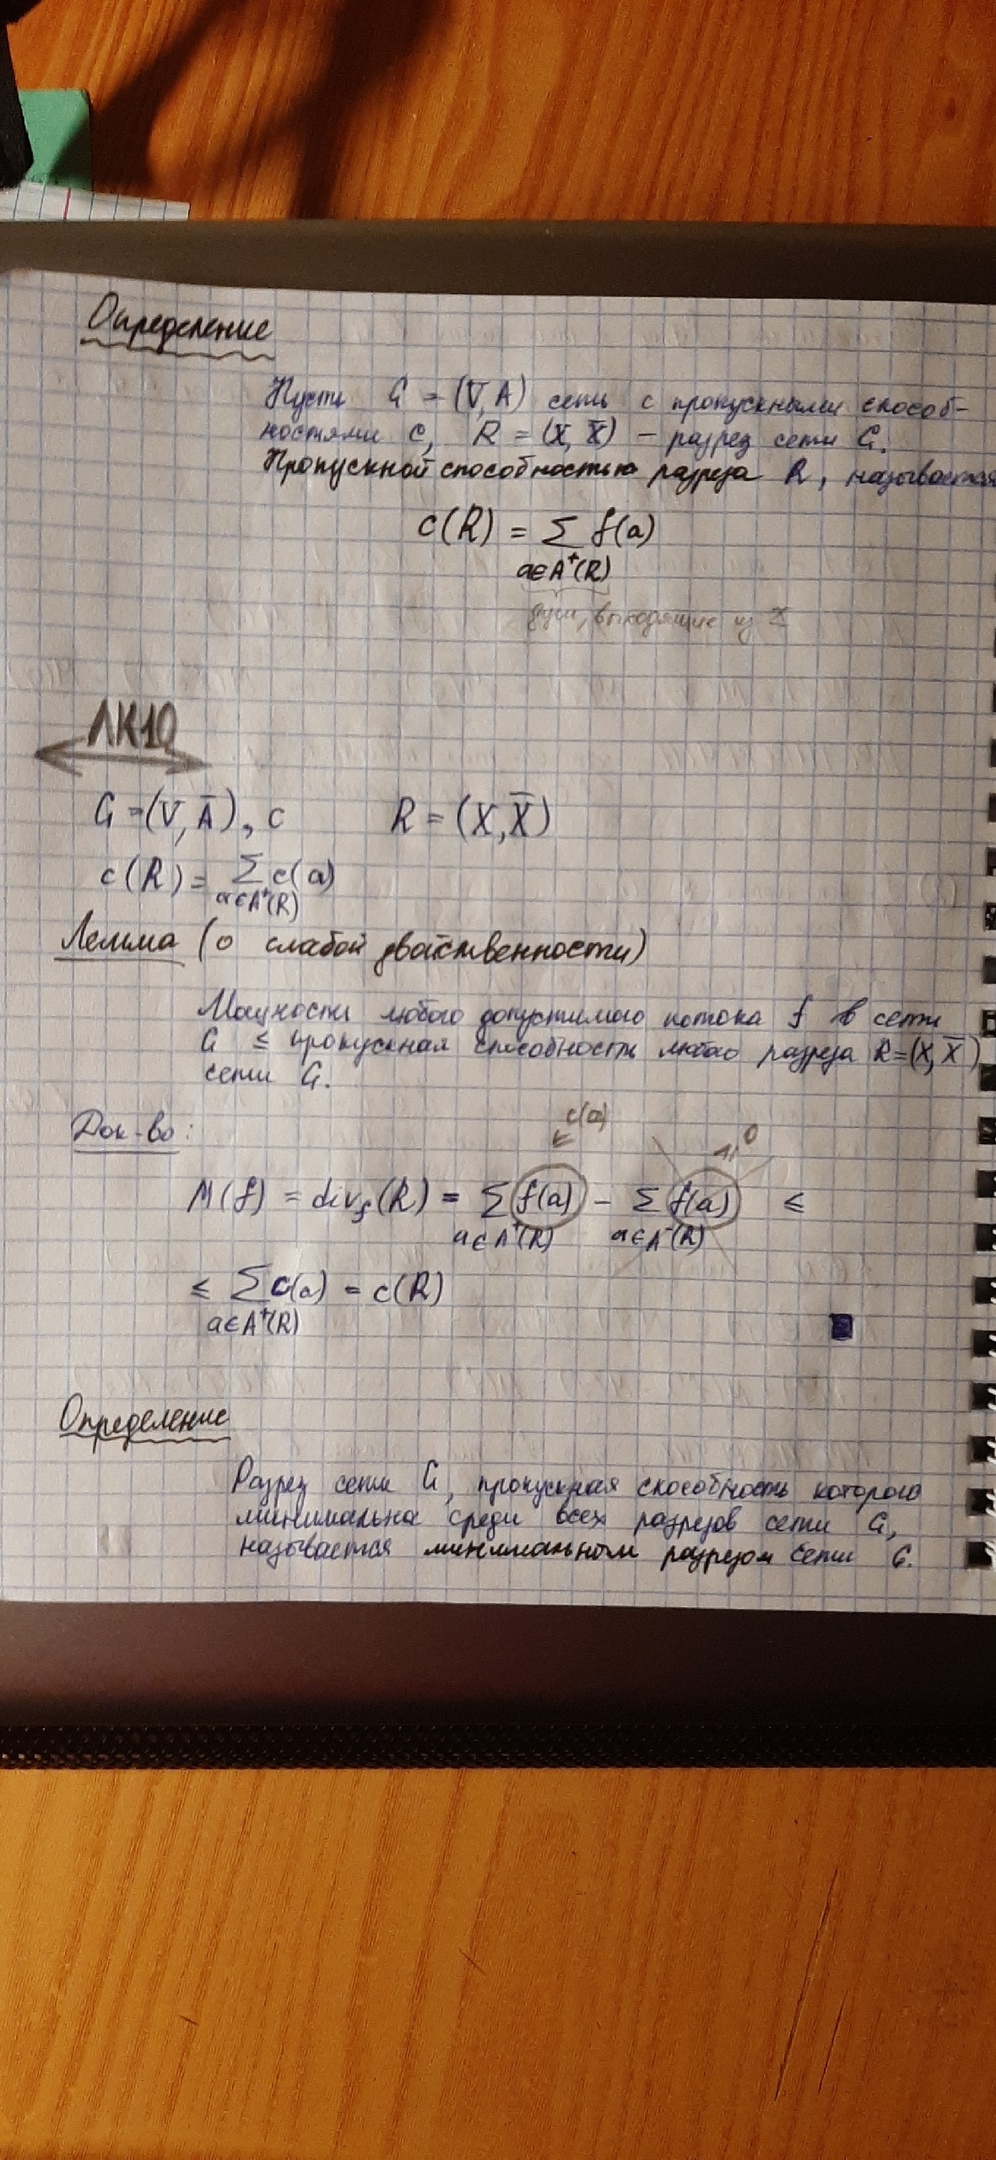 Определение
Пусть G = (V, A) сеть с пропускными способ-
ностями c, R = (X, X̅) – разрез сети G.
Пропускной способностью разреза R, называется
c(R) = Σ f(a)
a∈A⁺(R)
дуги, выходящие из X
ЛК10
G = (V, A̅), c R = (X, X̅)
c(R) = Σ c(a)
a∈A⁺(R)
Лемма (о слабой двойственности)
Мощность любого допустимого потока f в сети
G ≤ пропускная способность любого разреза R=(X, X̅)
сети G.
Док-во:
c(a)
0
M(f) = div_f(R) = Σ f(a) – Σ f(a) ≤
a∈A⁺(R) a∈A⁻(R)
≤ Σ c(a) = c(R)
a∈A⁺(R)
Определение
Разрез сети G, пропускная способность которого
минимальна среди всех разрезов сети G,
называется минимальным разрезом сети G.